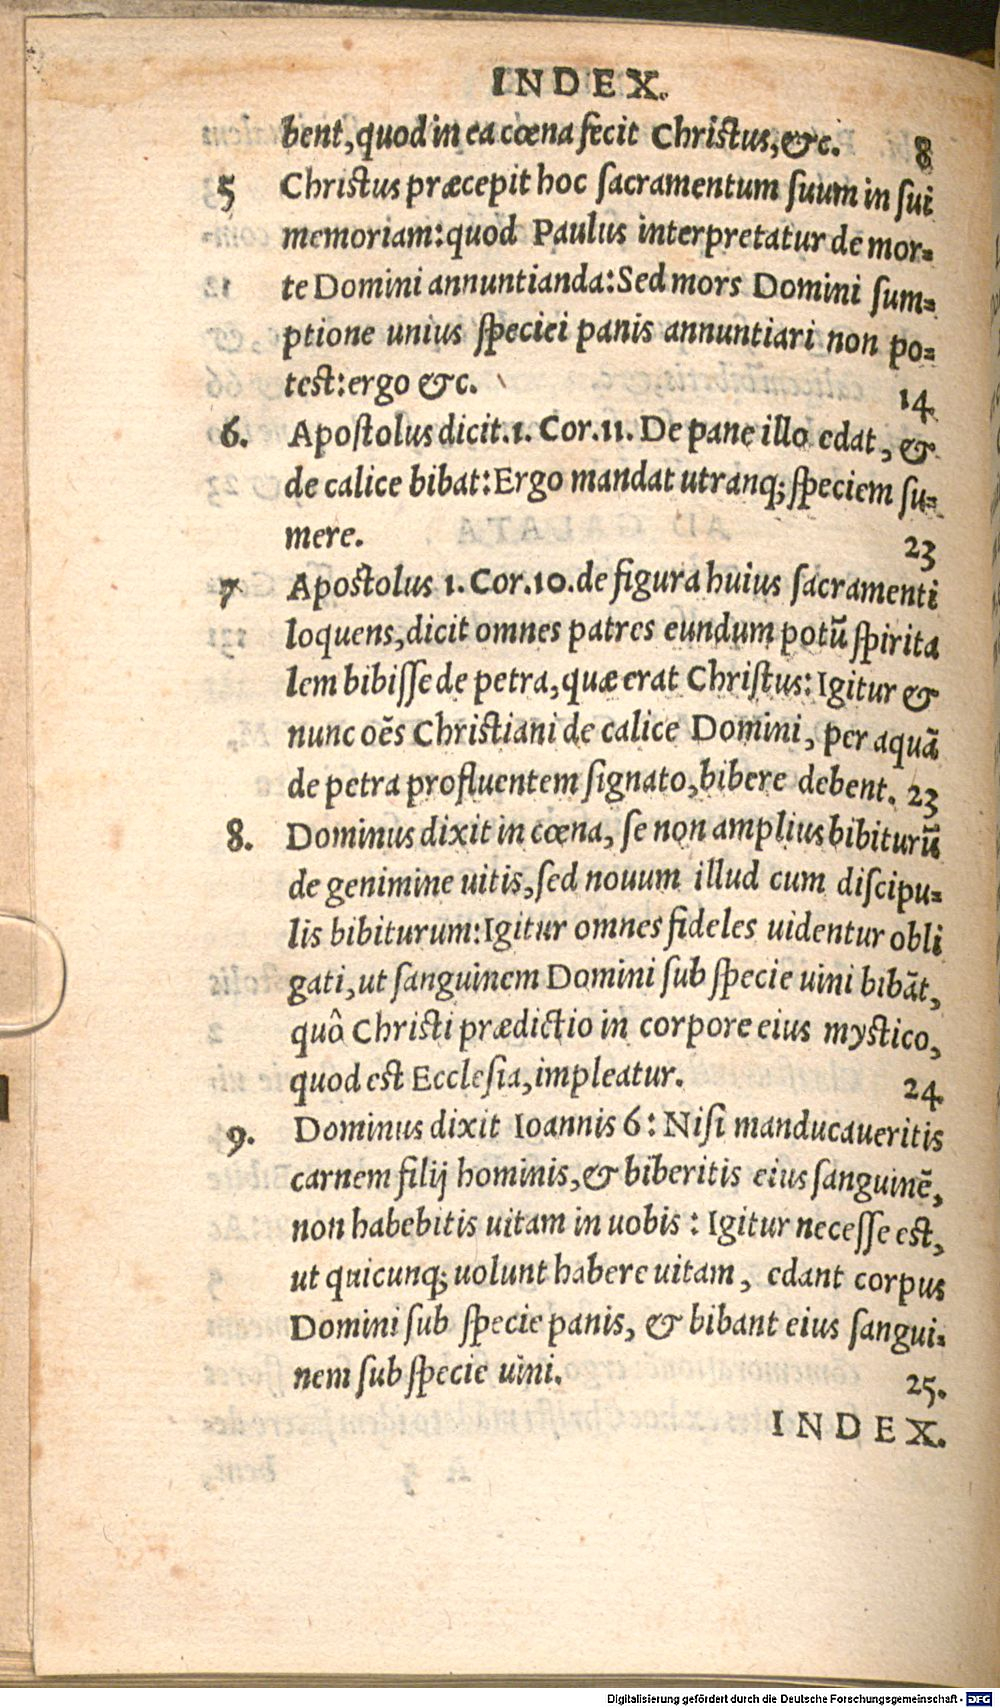 INDEX.
bent, quod in ea cœna fecit Christus, &c. 8
5 Christus præcepit hoc sacramentum suum in sui
memoriam: quod Paulus interpretatur de mor=
te Domini annuntianda: Sed mors Domini sum=
ptione unius speciei panis annuntiari non po=
test: ergo &c. 14.
6. Apostolus dicit. 1. Cor. 11. De pane illo edat, &
de calice bibat: Ergo mandat utranq; speciem su=
mere. 23
7 Apostolus 1. Cor. 10. de figura huius sacramenti
loquens, dicit omnes patres eundum potũ spirita
lem bibisse de petra, quæ erat Christus: Igitur &
nunc oẽs Christiani de calice Domini, per aquã
de petra profluentem signato, bibere debent. 23
8. Dominus dixit in cœna, se non amplius bibiturũ
de genimine uitis, sed nouum illud cum discipu=
lis bibiturum: Igitur omnes fideles uidentur obli
gati, ut sanguinem Domini sub specie uini bibãt,
quô Christi prædictio in corpore eius mystico,
quod est Ecclesia, impleatur. 24.
9. Dominus dixit Ioannis 6: Nisi manducaueritis
carnem filij hominis, & biberitis eius sanguinẽ,
non habebitis uitam in uobis: Igitur necesse est,
ut quicunq; uolunt habere uitam, edant corpus
Domini sub specie panis, & bibant eius sangui=
nem sub specie uini. 25.
INDEX.
Digitalisierung gefördert durch die Deutsche Forschungsgemeinschaft - DFG